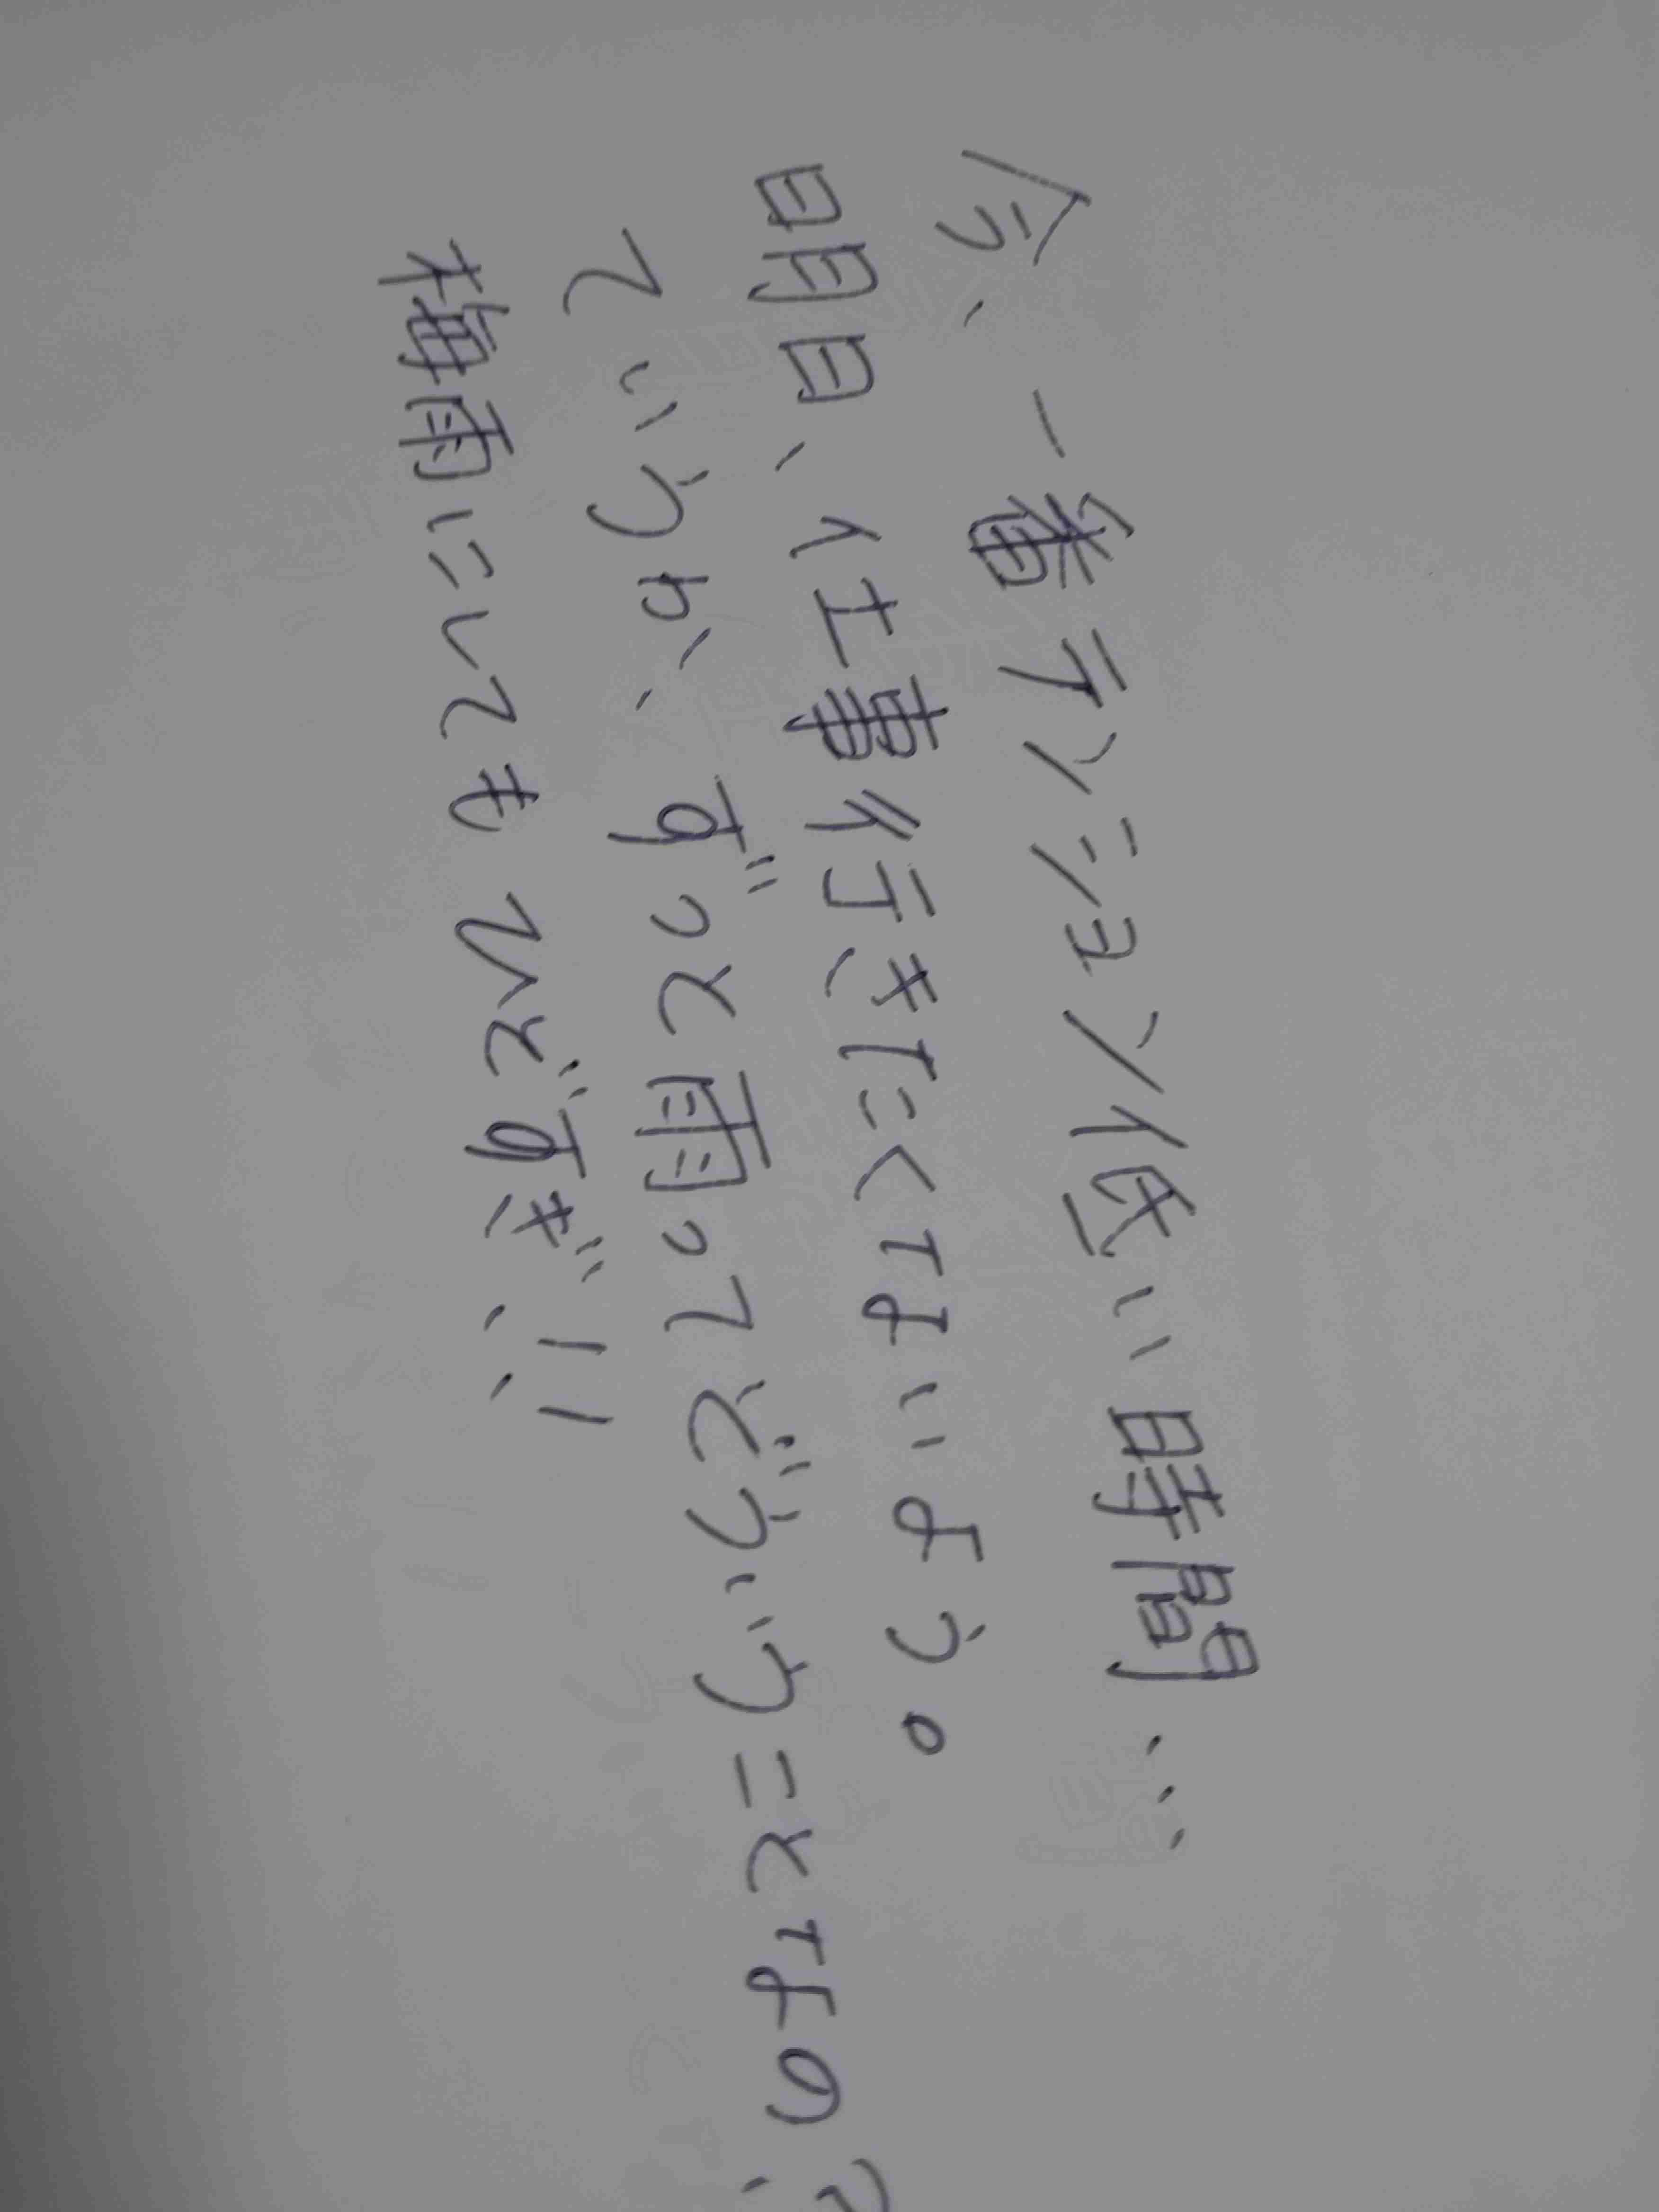 今、一番テンション低い時間…
明日、仕事行きたくないよう。
ていうか、ずっと雨ってどういうことなの?
梅雨にしてもひどすぎ!!